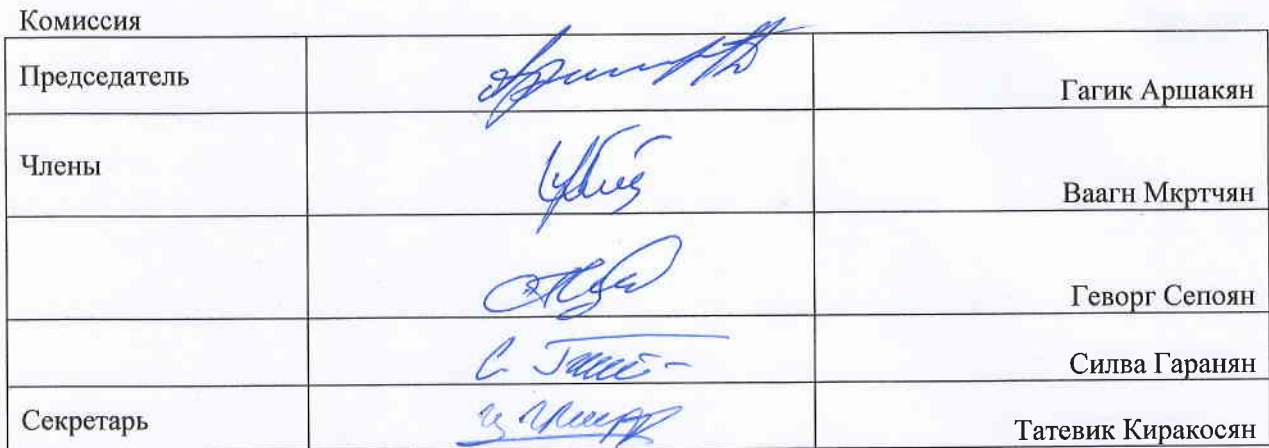 Комиссия
Председатель
Гагик Аршакян
Члены
Ваагн Мкртчян
Геворг Сепоян
Силва Гаранян
Секретарь
Татевик Киракосян